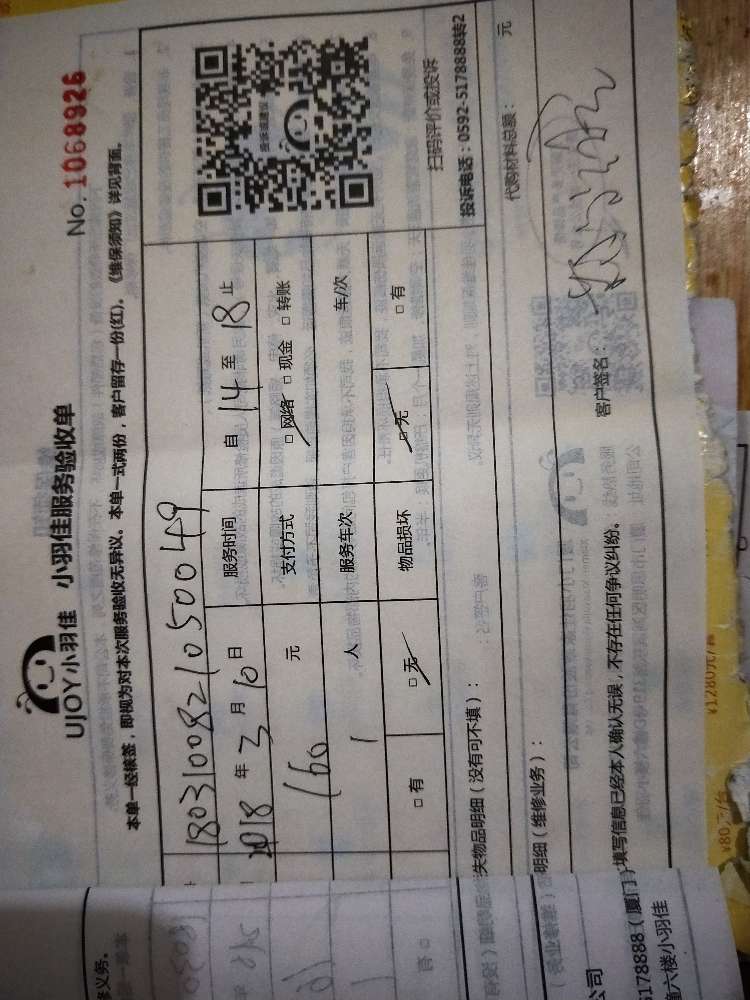 UJOY小羽佳 小羽佳服务验收单
No. 1068926
本单一经核签，即视为对本次服务验收无异议。本单一式两份，客户留存一份(红)。《维保须知》详见背面。
18031008210500049
2018 年 3 月 10 日 服务时间 自 14 至 18 止
160 元 支付方式 □网络 □现金 □转账
1 人 服务车次 车/次
□有 □无 物品损坏 □无 □有
扫码评价或投诉
投诉电话：0592-5178888转2
失物品明细（没有可不填）：
明细（维修业务）： 代购材料总额： 元
填写信息已经本人确认无误，不存在任何争议纠纷。 客户签名：
公司
5178888（厦门）
六楼小羽佳
修义务。
¥1280元/套
¥80元/台